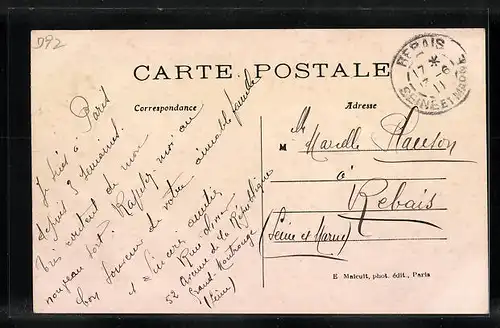 D92
REBAIS
17 *
17 - 6
11
SEINE ET MARNE
CARTE POSTALE
Correspondance
Adresse
Je suis à Paris
depuis 3 semaines.
Très content de mon
nouveau sort. Rappelez moi au
bon souvenir de votre aimable famille
et sincère amitié,
52 Avenue de la République
Grand Montrouge
(Seine)
M Marcelle
à
Rebais
(Seine et Marne)
E. Malcuit, phot. édit., Paris